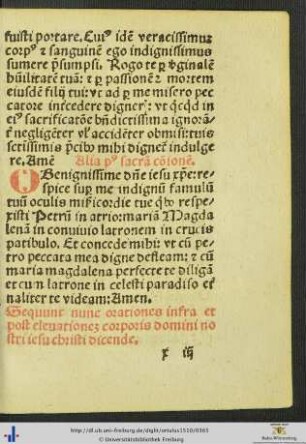 fuisti portare. Cuiꝰ idē veracissimuʒ
corpꝰ ⁊ sanguinē ego indignissimus
sumere p̄sumpsi. Rogo te ꝑ ꝟginalē
hūilitatē tuā: ⁊ ꝑ passionē ⁊ mortem
eiusdē filij tui: vt ad ꝑ me misero pec
catore int̓cedere digner̓: vt qͥcqd in
eiꝰ sacrificatōe bn̄dictissima ignorā
t̓ negligēter vl̓ accidēter obmisi: tuis
setissimis p̄cibꝰ mihi dignet̓ indulge
re. Amē Alia pꝰ sacrā cōionē.
O Benignissime dn̄e iesu xp̄e: re
spice suꝑ me indignū famulū
tuū oculis misericordie tue qͥbꝰ respe
xisti Petrū in atrio: mariā Magda
lenā in conuiuio latronem in crucis
patibulo. Et concede mihi: vt cū pe
tro peccata mea digne defleam: ⁊ cū
maria magdalena perfecte te diligā
et cum latrone in celesti paradiso et̓
naliter te videam: Amen.
Sequunt̓ nunc orationes infra et
post eleuationeʒ corporis domini no
stri iesu christi dicende.
x iij
http://dl.ub.uni-freiburg.de/diglit/ortulus1510/0303
© Universitätsbibliothek Freiburg
Baden-Württemberg